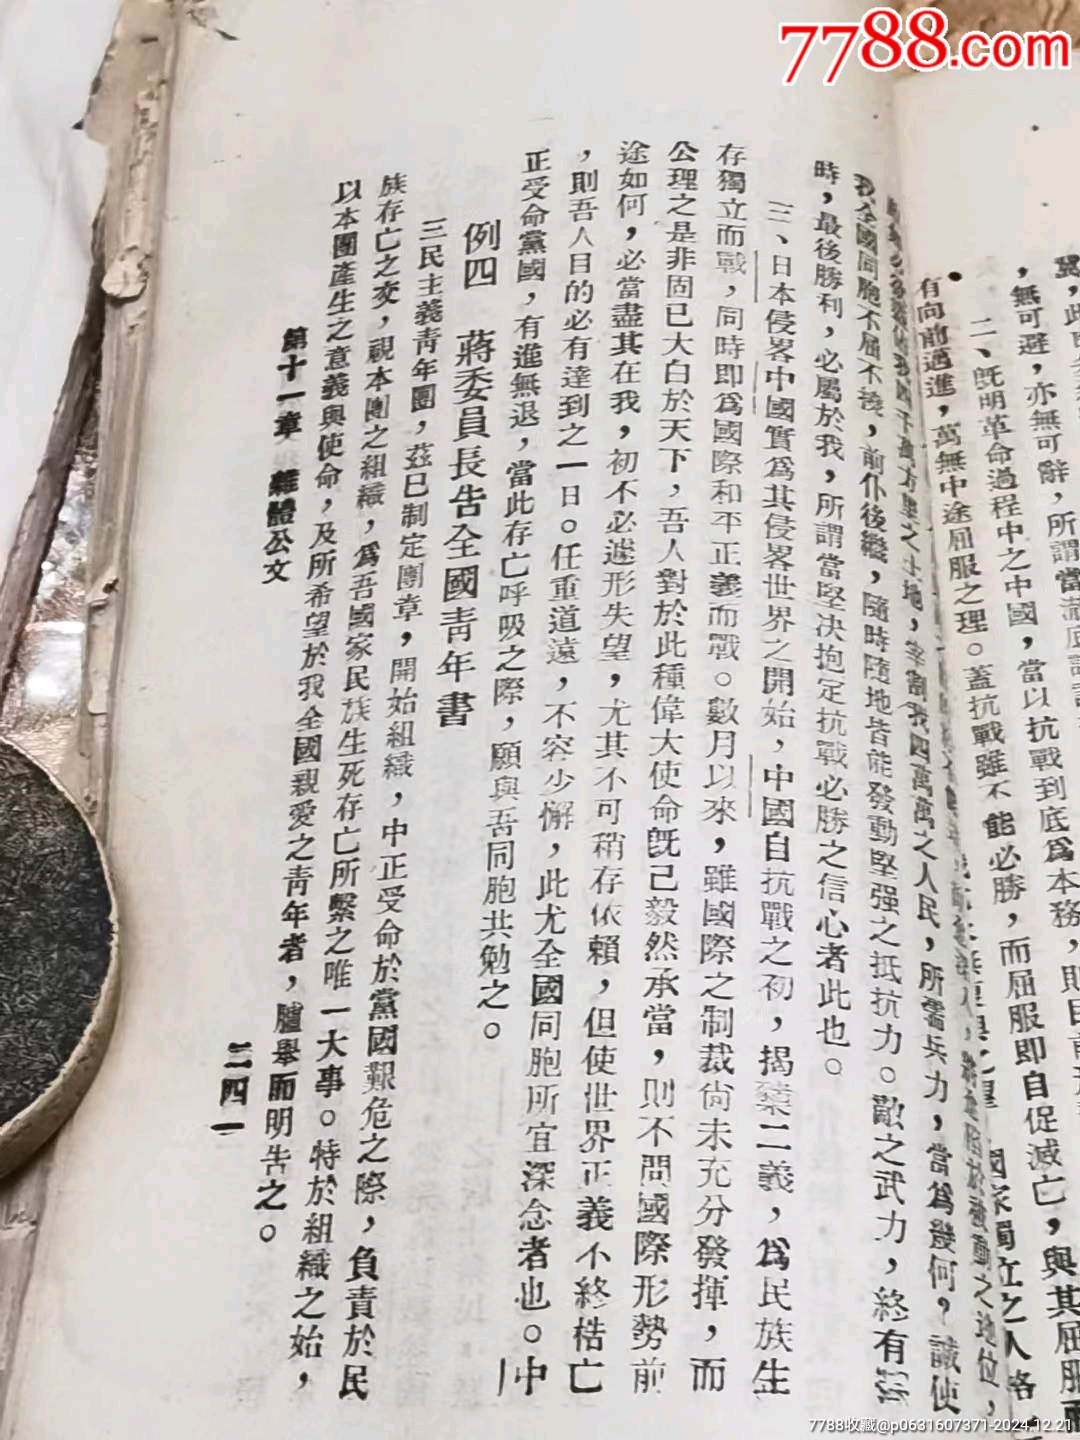 7788.com
冀，此
，無可避，亦無可辭，所謂當澈底
二、旣明革命過程中之中國，當以抗戰到底爲本務，則目前
有向前邁進，萬無中途屈服之理。蓋抗戰雖不能必勝，而屈服卽自促滅亡，與其屈服而
國家獨立之人格
千萬方里之土地，宰割我四萬萬之人民，所需兵力，當爲幾何，誠使
我全國同胞不屈不撓，前仆後繼，隨時隨地皆能發動堅强之抵抗力。敵之武力，終有
時，最後勝利，必屬於我，所謂當堅决抱定抗戰必勝之信心者此也。
三、日本侵畧中國實爲其侵畧世界之開始，中國自抗戰之初，揭櫫二義，爲民族生
存獨立而戰，同時卽爲國際和平正義而戰。數月以來，雖國際之制裁尙未充分發揮，而
公理之是非固已大白於天下，吾人對於此種偉大使命旣已毅然承當，則不問國際形勢前
途如何，必當盡其在我，初不必遽形失望，尤其不可稍存依賴，但使世界正義不終梏亡
，則吾人目的必有達到之一日。任重道遠，不容少懈，此尤全國同胞所宜深念者也。中
正受命黨國，有進無退，當此存亡呼吸之際，願與吾同胞共勉之。
例四　蔣委員長告全國靑年書
三民主義靑年團，茲已制定團章，開始組織，中正受命於黨國艱危之際，負責於民
族存亡之交，視本團之組織，爲吾國家民族生死存亡所繫之唯一大事。特於組織之始，
以本團產生之意義與使命，及所希望於我全國親愛之靑年者，臚舉而明告之。
第十一章　雜體公文
二四一
7788收藏@p0631607371-2024.12.21